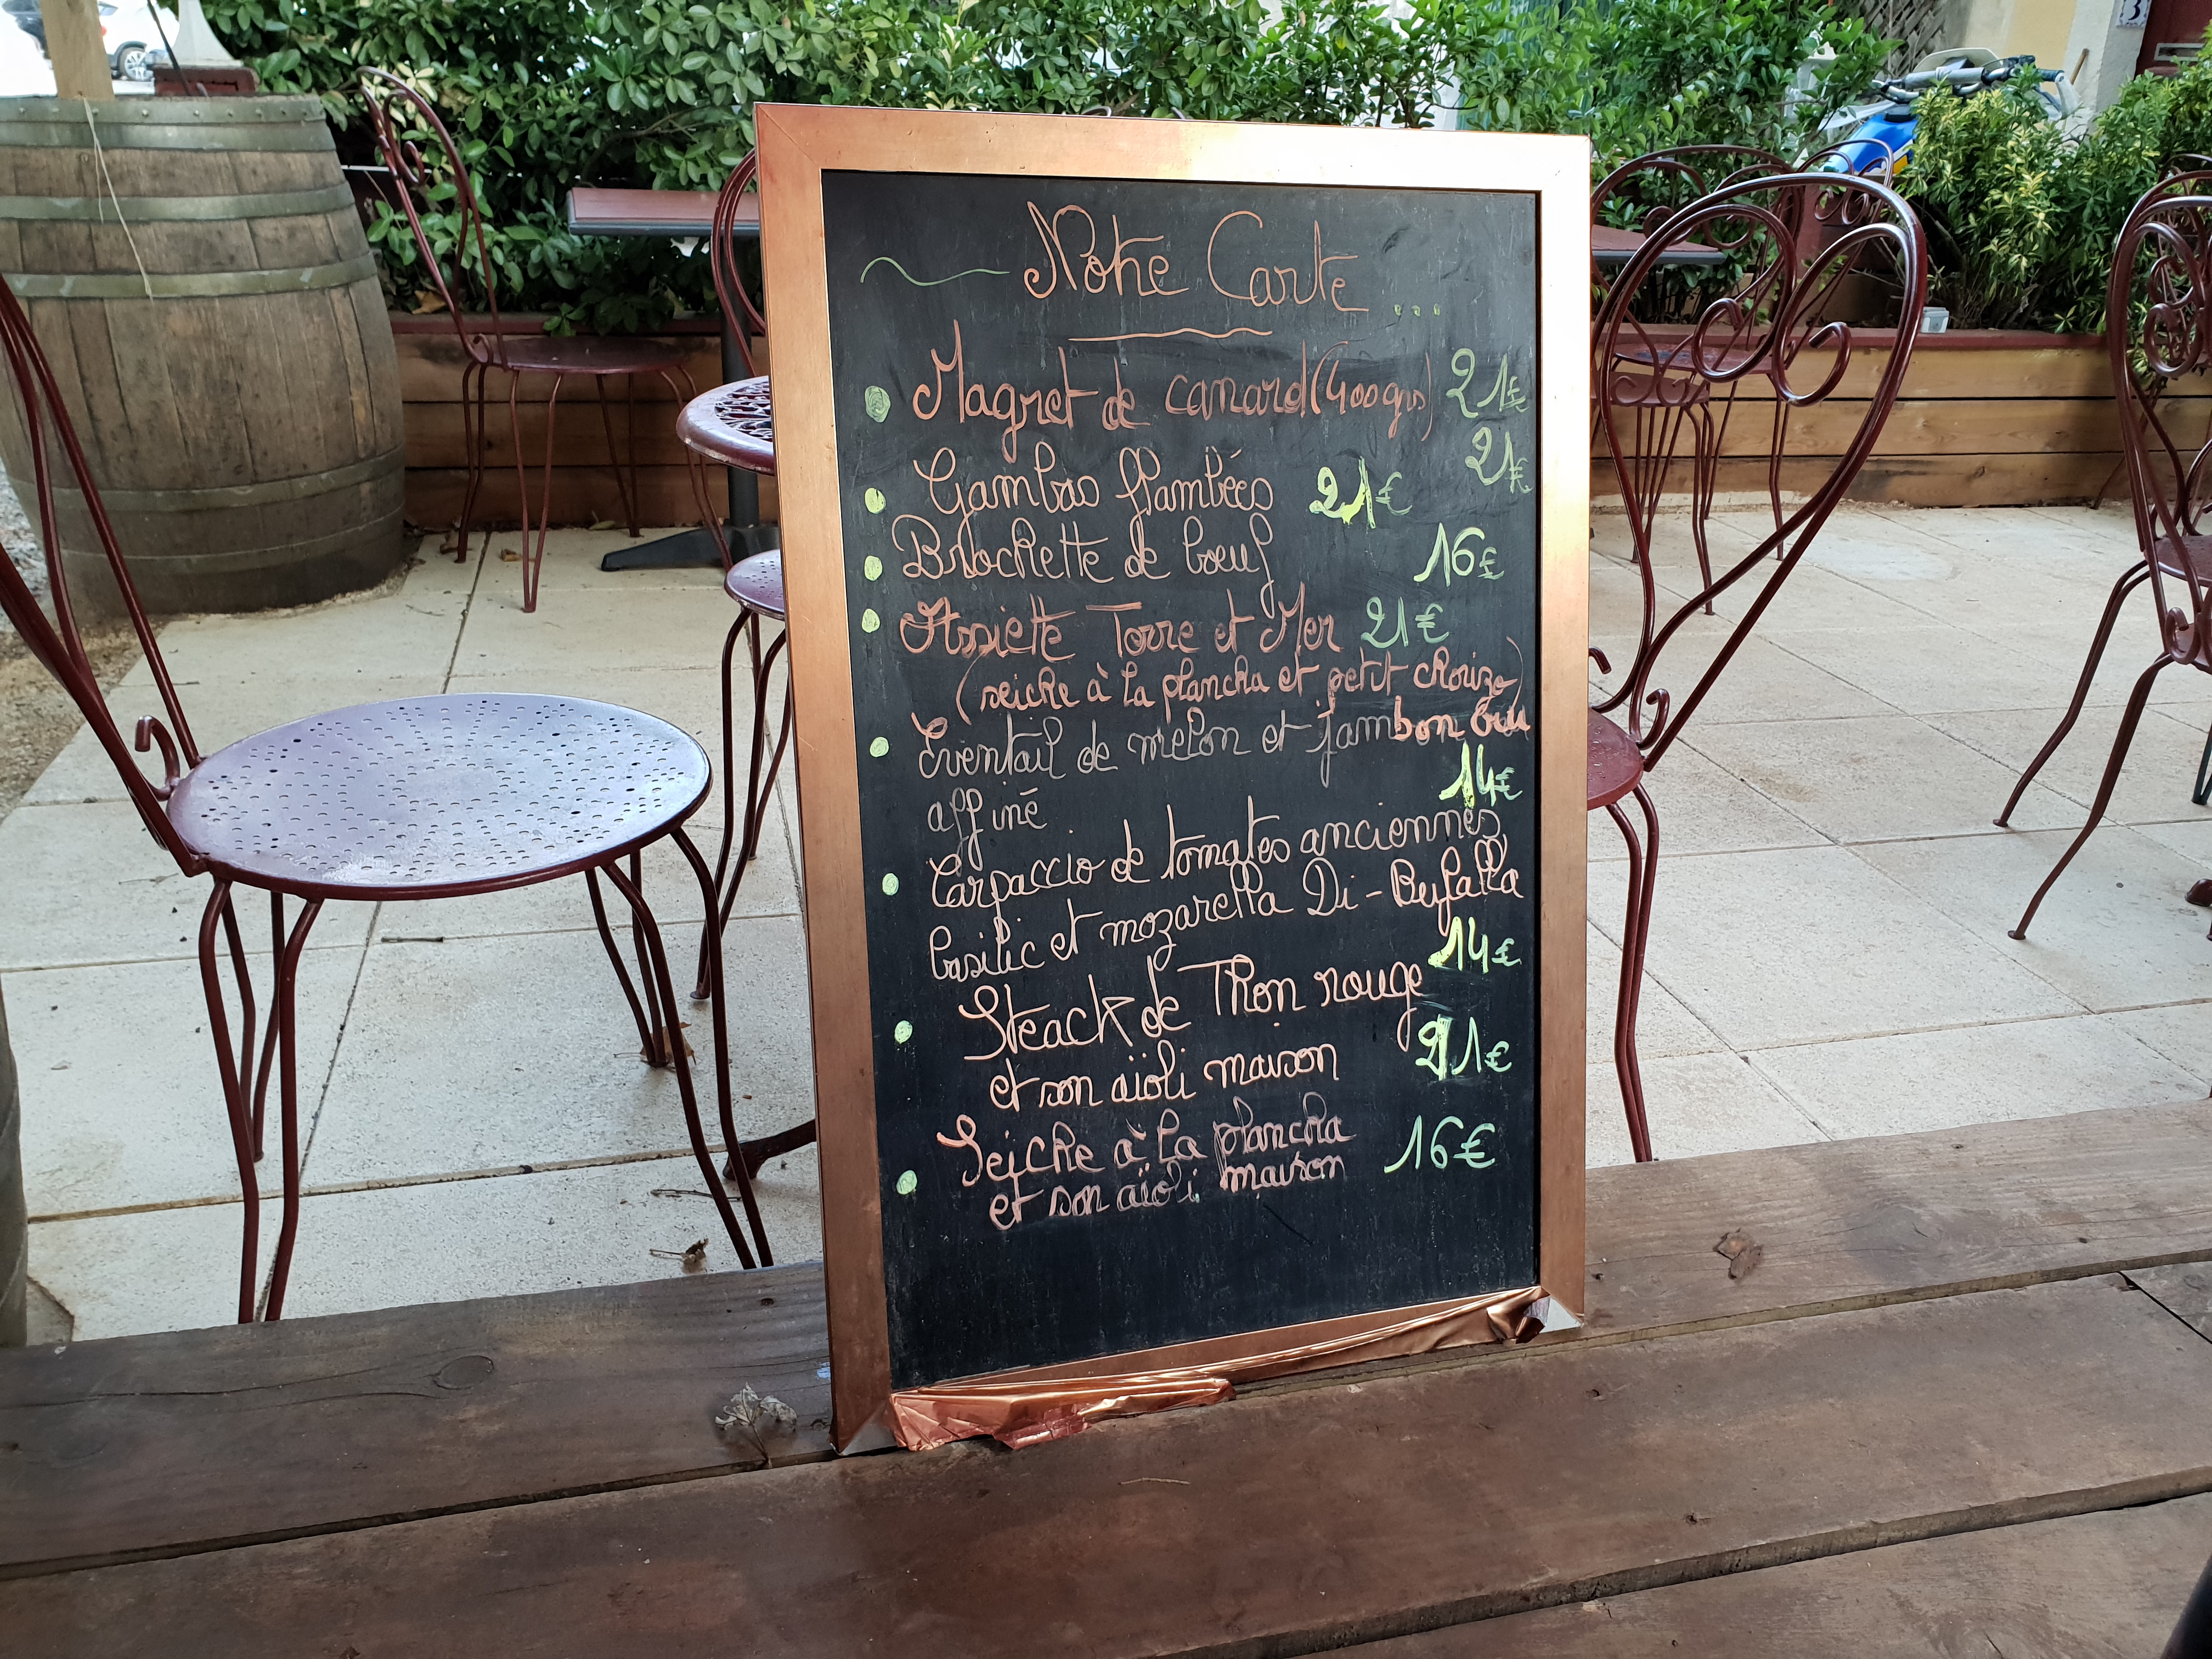 Notre Carte ...
Magret de canard (400grs) 21€
21€
Gambas flambées 21€
Brochette de boeuf 16€
Assiette Terre et Mer 21€
(seiche à la plancha et petit chorizo)
Eventail de melon et jambon cru
14€
affiné
Carpaccio de tomates anciennes,
basilic et mozarella Di-Bufalla
14€
Steack de Thon rouge
et son aïoli maison 21€
Seiche à la plancha 16€
et son aïoli maison
3